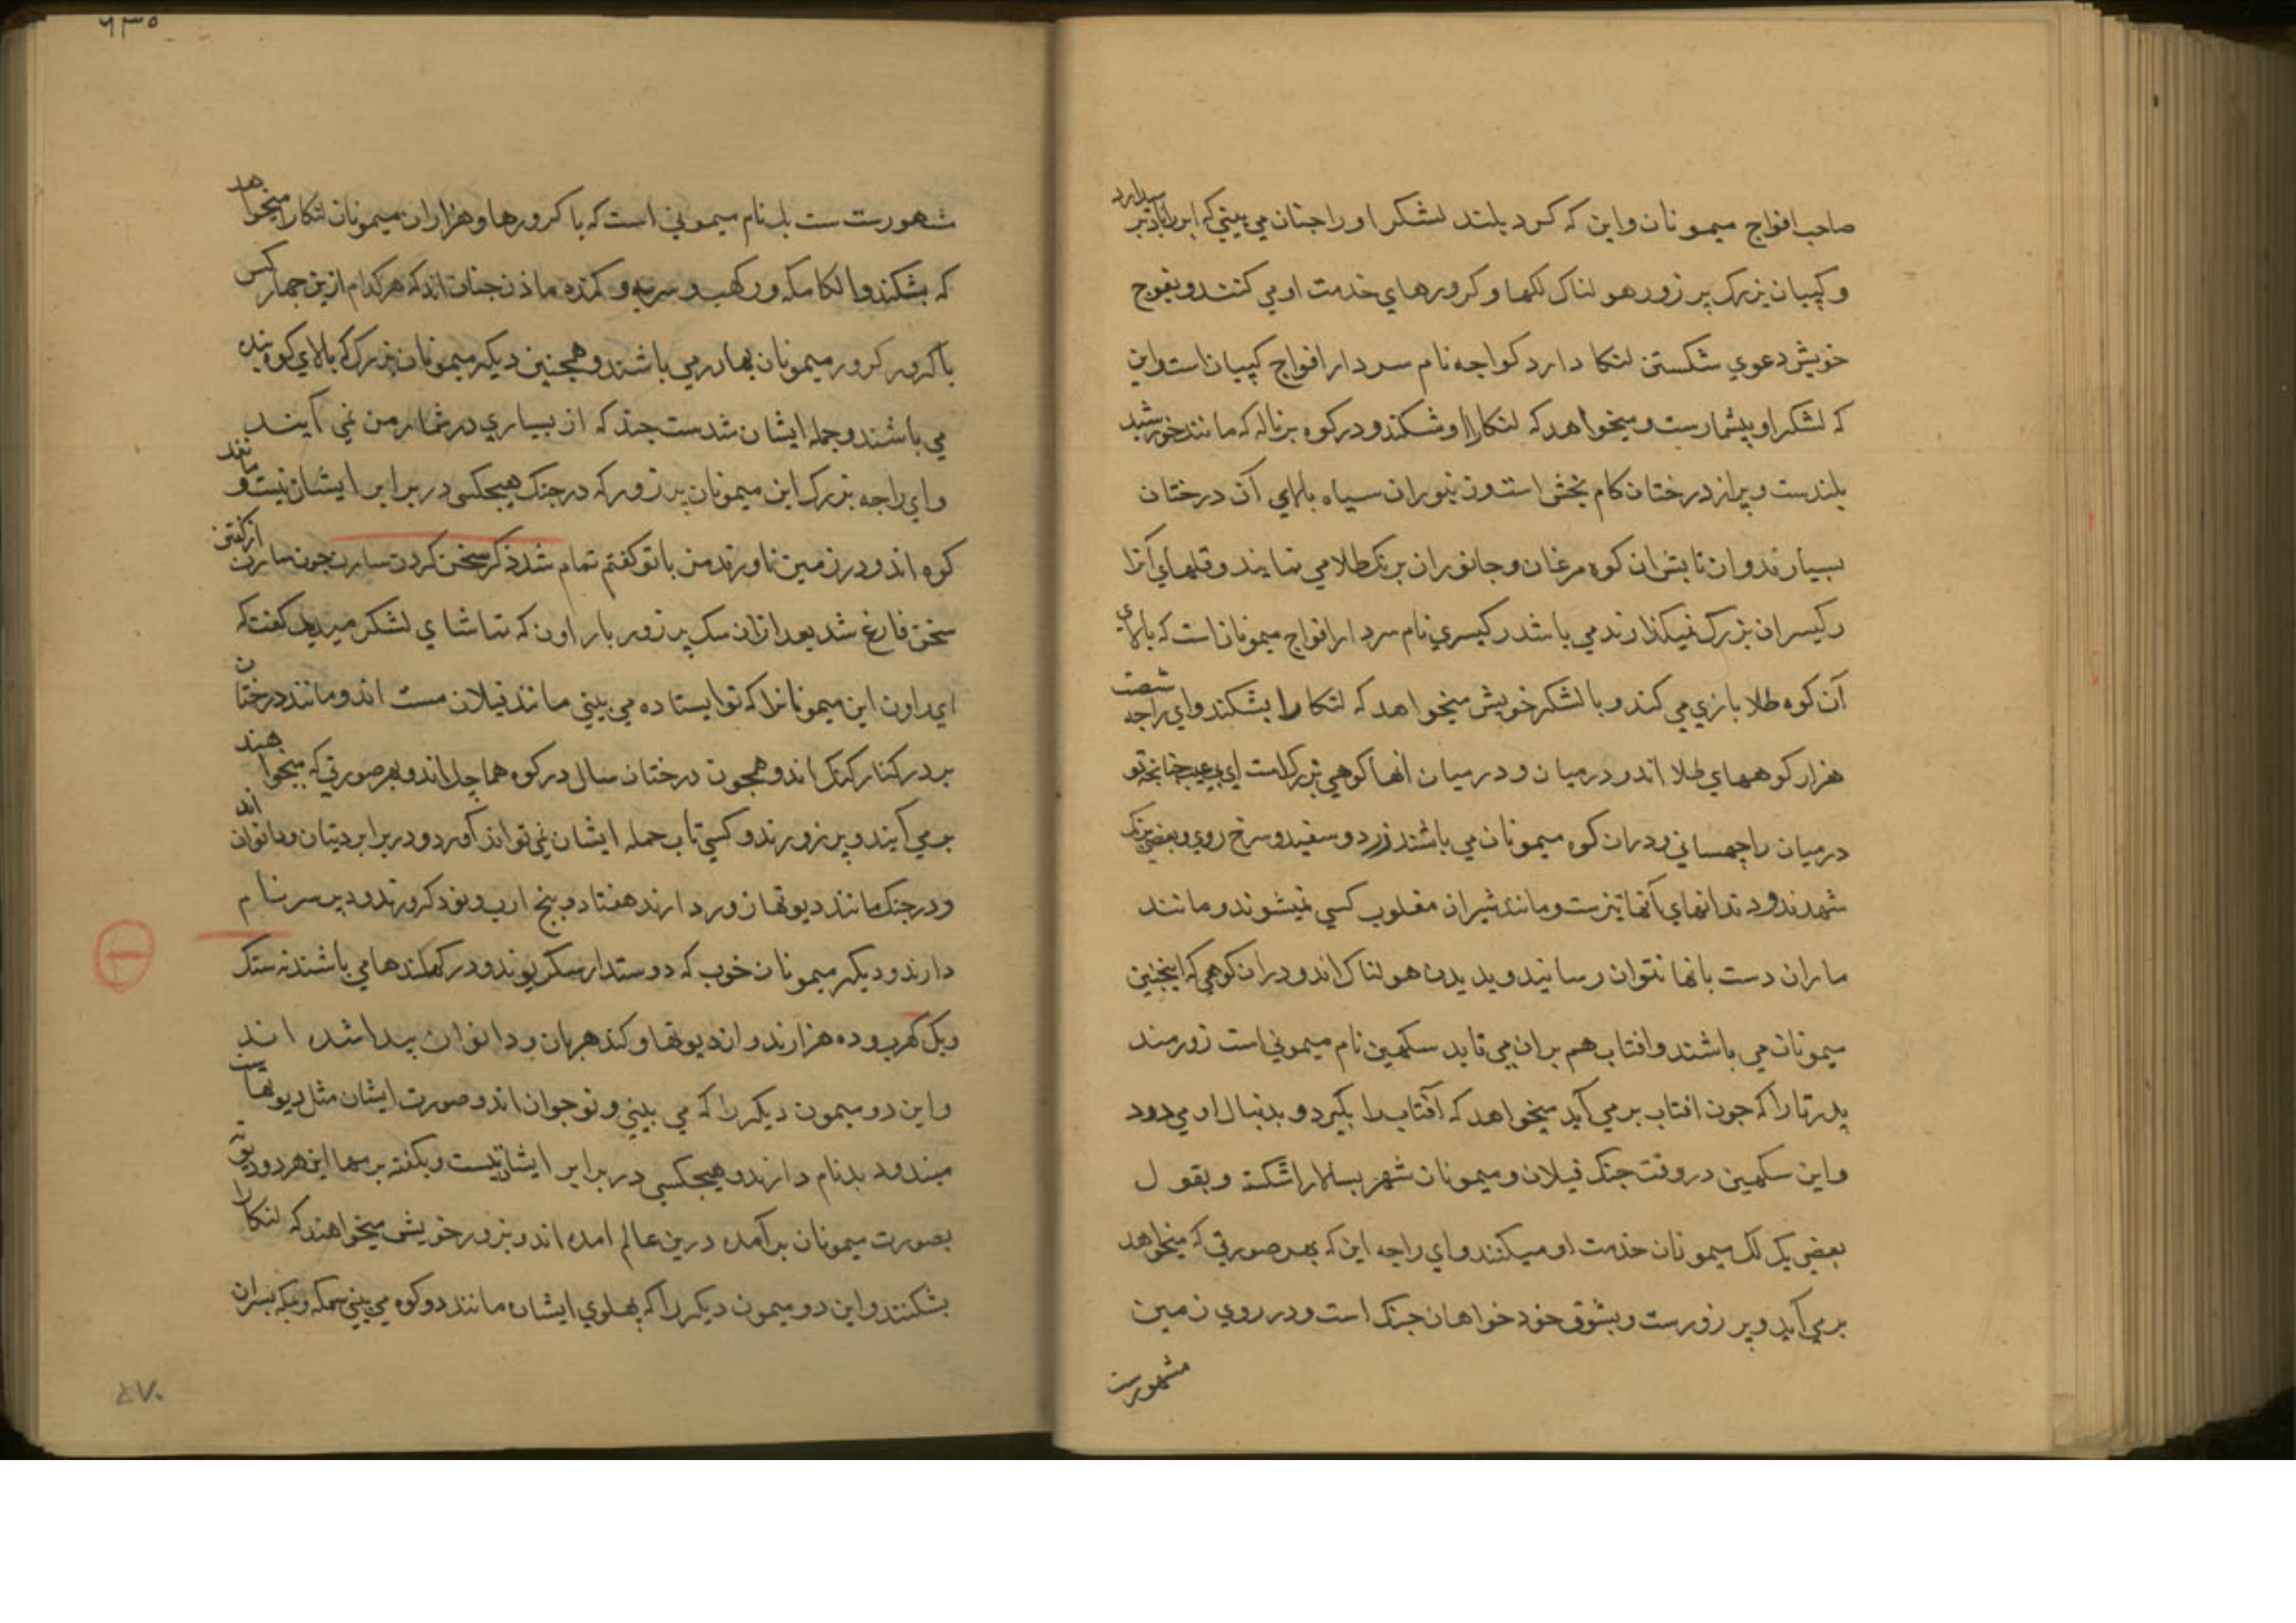 صاحب افواج میمونان و این که کرد بلند لشکر او را چنان می بینی که ابر را باد بر میدارد
و کپیان بزرک پر زور هولناک لکها و کرورهای خدمت او می کنند و بفوج
خویش دعوی شکستن لنکا دارد کواجه نام سردار افواج کپیان است و این
که لشکر او بیشمارست و میخواهد که لنکا را او شکند و در کوه برناله که مانند خورشید
بلندست و پر از درختان کام بخش است و زنبوران سیاه بالای آن درختان
بسیارند و از تابش ان کوه مرغان و جانوران برنک طلا می نمایند و قلهای آنرا
رکیسران بزرک نمیکذارند می باشد رکیسری نام سردار افواج میمونان است که بالای
آن کوه طلا بازی می کند و با لشکر خویش میخواهد که لنکا را بشکند و ای راجه شصت
هزار کوههای طلا اند و درمیان و درمیان انها کوهی بزرکست ای بی عیب چنانچه تو
درمیان راچهسانی و دران کوه میمونان می باشند زرد و سفید و سرخ روی و بعضی برنک
شهدند و دندانهای آنها تیزست و مانند شیران مغلوب کسی نمیشوند و مانند
ماران دست بانها نتوان رسانید و بدیدن هولناک اند و دران کوهی که اینچنین
میمونان می باشند و افتاب هم بران می تابد سکهین نام میمونی است زورمند
پدر تارا که چون افتاب برمی آید میخواهد که آفتاب را بکیرد و بدنبال او می دود
و این سکهین در وقت جنک فیلان و میمونان شهر را شکسته و بقول
بعضی یک لک میمونان خدمت او میکنند و ای راجه این که بهر صورتی که میخواهد
برمی آید و پر زورست و بشوق خود خواهان جنک است و در روی زمین
مشهورست
۹۳۵
مشهورست ست بل نام میمونی است که با کرورها و هزاران میمونان لنکا را میخواهد
که بشکند و الکامکه و رکهب و و کنده ماذن چنان اند که هر کدام ازین چهار کس
با کرور کرور میمونان بهادر می باشند و همچنین دیکر میمونان بزرک که بالای کوه بنده
می باشند و جمله ایشان شدست چند که از بسیاری در شمار من نمی آیند
و ای راجه بزرک این میمونان پر زور که در جنک هیچکس در برابر ایشان نیست و مانند
کوه اند و در زمین نامورند من با تو کفتم تمام شد ذکر سخن کردن سارن چون سارن از کفتن
سخن فارغ شد بعد ازان سک پر زور با راون که تماشای لشکر میدید کفت که
ای راون این میمونانرا که تو ایستاده می بینی مانند فیلان مست اند و مانند درختان
بر در کنار کنک اند و همچون درختان سال در کوه هماچل اند و بهر صورتی که میخواهند
برمی آیند و پر زورند و کسی تاب حمله ایشان نمی تواند آورد و در برابر دیتان و دانوان اند
و در جنک مانند دیوتهان ورد دارند هفتاد و پنج ارب و نود کرورند و دیر سر نام
دارند و دیکر میمونان خوب که دوستدار سکریوند و در کهکندها می باشند نه سنک
و یک کهرب و ده هزارند و از دیوتها و کندهربان و دانوان پیدا شده اند
و این دو میمون دیکر را که می بینی و نوجوان اند و صورت ایشان مثل دیوتهاست
میند و دبد نام دارند و هیچکسی در برابر ایشان نیست و بکفته برمها این هر دو دیوته
بصورت میمونان برآمده درین عالم امده اند و بزور خویش میخواهند که لنکا را
بشکنند و این دو میمون دیکر را که پهلوی ایشان مانند دو کوه می بینی سمکه و پسران
۴۷۰